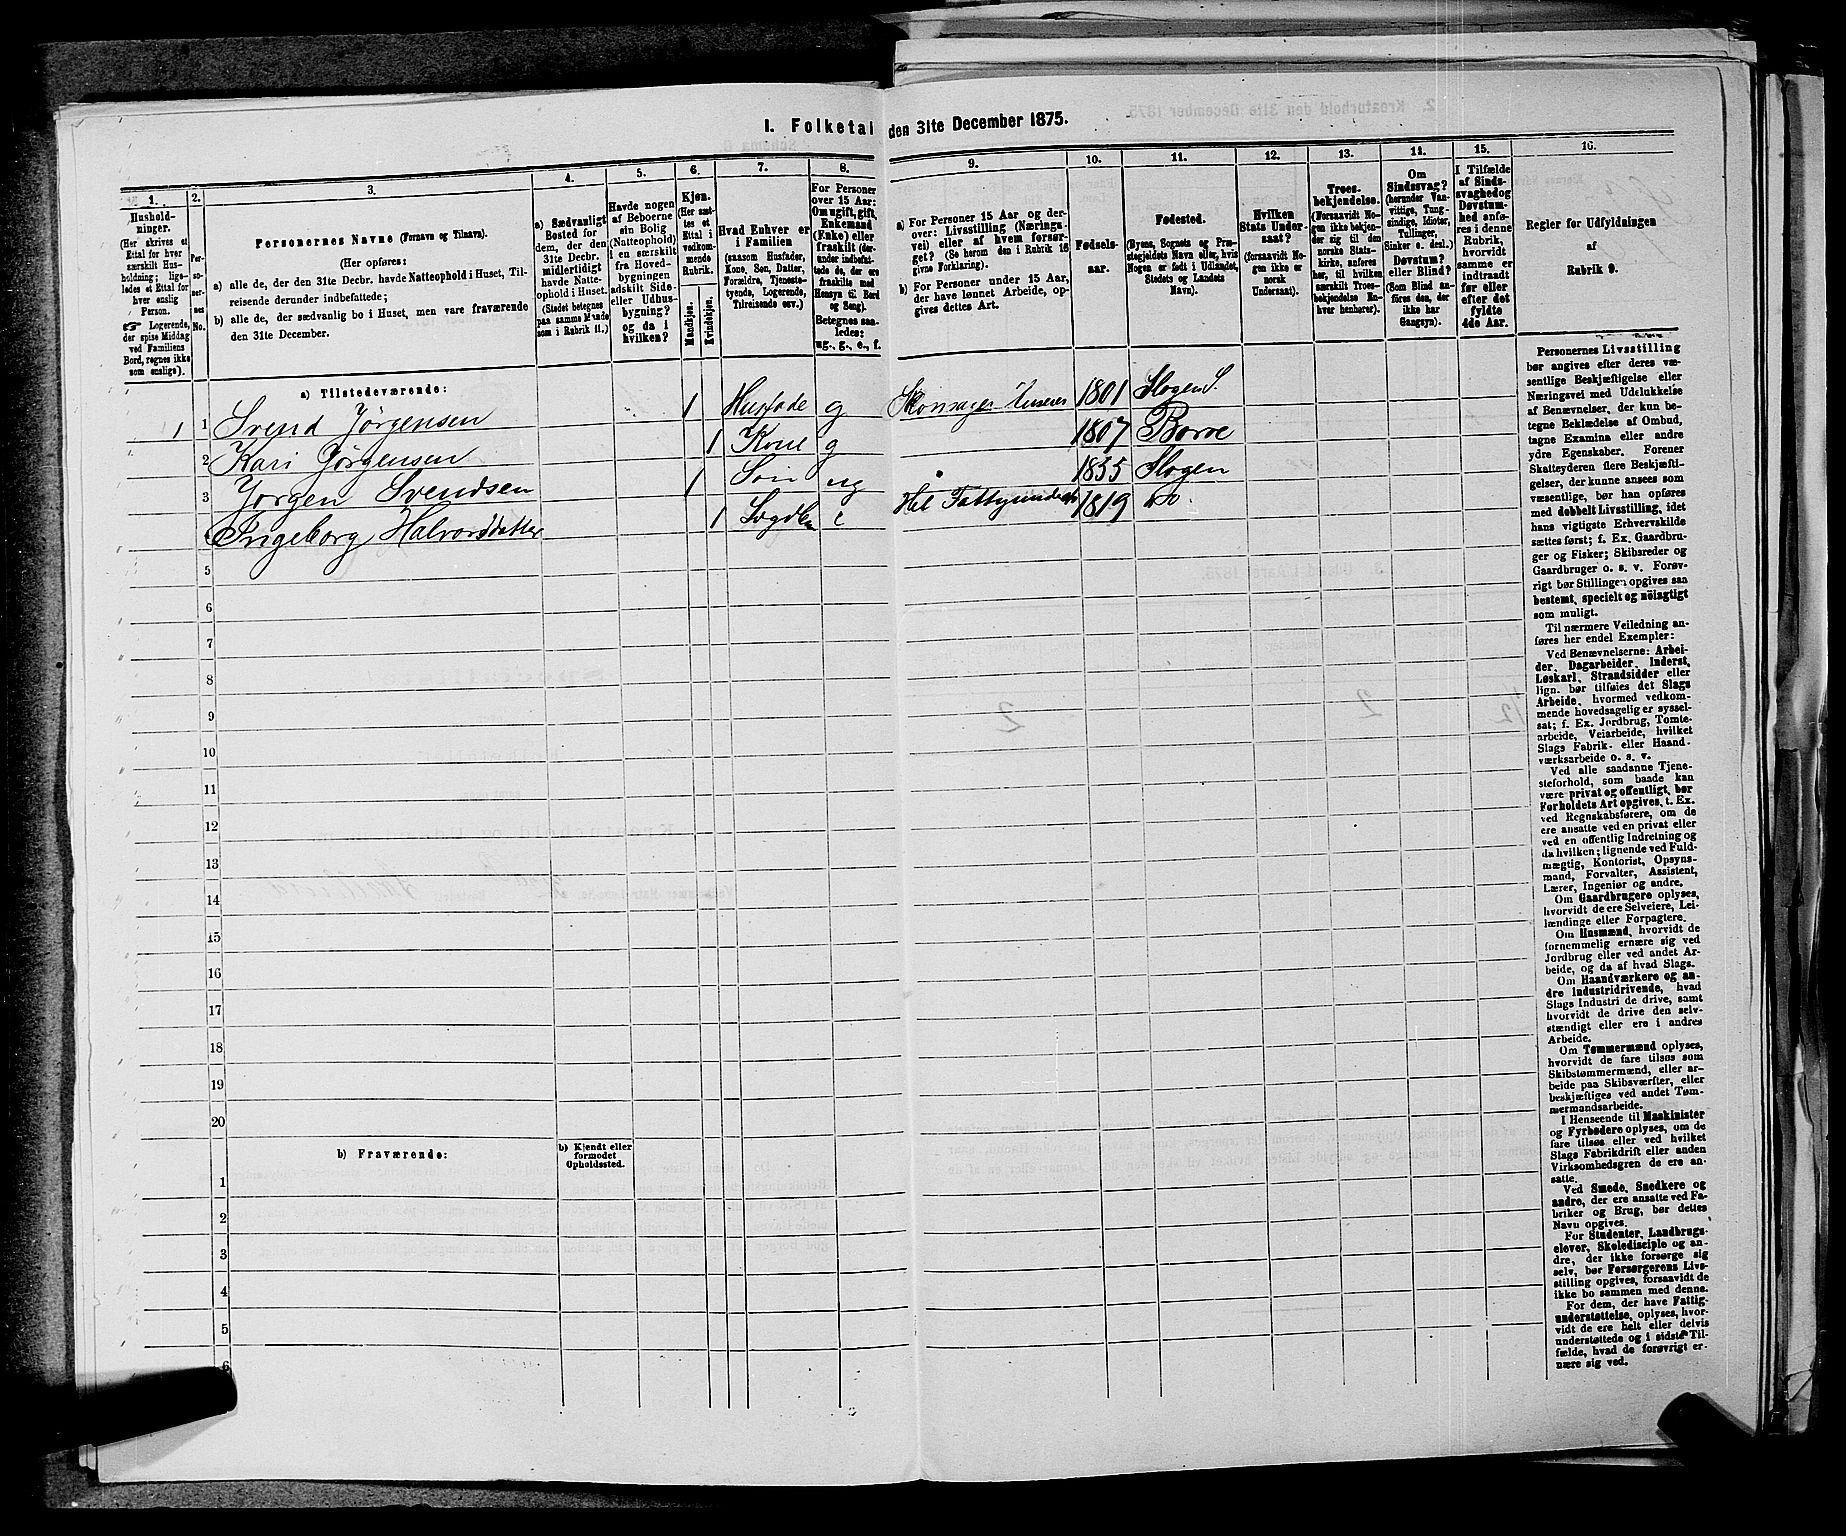 I. Folketal den 31te December 1875.
1.
Husholdninger.
(Her skrives et
Ettal for hver
særskilt Husholdning;
ligeledes et Ettal for
hver enslig
Person.
☞ Logerende,
der spise Middag
ved Familiens
Bord, regnes ikke
som enslige).
2.
Personernes No.
3.
Personernes Navne (Fornavn og Tilnavn).
(Her opføres:
a) alle de, der den 31te Decbr. havde Natteophold i Huset, Tilreisende derunder indbefattede;
b) alle de, der sædvanlig bo i Huset, men vare fraværende
den 31te December.
4.
a) Sædvanligt
Bosted for
dem, der den
31te Decbr.
midlertidigt
havde Natteophold i Huset.
(Stedet betegnes
paa samme Maade
som i Rubrik 11.)
5.
Havde nogen
af Beboerne
sin Bolig
(Natteophold)
i en særskilt
fra Hovedbygningen
adskilt Side-
eller Udhusbygning?
og da i
hvilken?
6.
Kjøn.
(Her sættes et
Ettal i
vedkommende
Rubrik.
Mandkjøn.
Kvindekjøn.
7.
Hvad Enhver er
i Familien
(saasom Husfader,
Kone, Søn, Datter,
Forældre, Tjenestetyende, Logerende,
Tilreisende osv.)
8.
For Personer
over 15 Aar:
Om ugift, gift,
Enkemand
(Enke) eller
fraskilt (derunder indbefattede de, der ere
fraskilte med
Hensyn til Bord
og Seng).
Betegnes saaledes:
ug., g., e., f.
9.
a) For Personer 15 Aar og derover: Livsstilling (Næringsvei) eller af hvem forsørget? (Se herom den i Rubrik 16
givne Forklaring).
b) For Personer under 15 Aar,
der have lønnet Arbeide, opgives dettes Art.
10.
Fødselsaar.
11.
Fødested.
(Byens, Sognets og Præstegjeldets Navn eller, hvis
Nogen er født i Udlandet,
Stedets og Landets
Navn).
12.
Hvilken
Stats Undersaat?
(forsaavidt Nogen ikke er
norsk
Undersaat).
13.
Troesbekjendelse.
(Forsaavidt Nogen ikke bekjender sig til den
norske Statskirke, anføres
her, til hvilken
særskilt Troesbekjendelse Enhver henhører).
14.
Om
Sindssvag?
(herunder Vanvittige, Tungsindige, Idioter,
Tullinger,
Sinker o. desl.)
Døvstum?
eller Blind?
(Som Blind anføres den, der
ikke har
Gangsyn).
15.
I Tilfælde
af Sindssvaghed og
Døvstumhed anføres i denne
Rubrik,
hvorvidt
samme er
indtraadt
før eller
efter det
fyldte
4de Aar.
16.
Regler før Udfyldningen
af
Rubrik 9.
a) Tilstedeværende:
1 1 Svend Jørgensen 1 Husfade g 1801 Slogen S.
2 Kari Jørgensen 1 Kone g 1807 Borre
3 Jørgen Svendsen 1 Søn ug 1855 Slogen
Ingeborg Halvorsdatter 1 e Hel 1819 do
5
6
7
8
9
10
11
12
13
14
15
16
17
18
19
20
b) Fraværende:
b) Kjendt eller
formodet
Opholdssted.
1
2
3
4
5
6
Personernes Livsstilling
bør angives efter deres væsentlige Beskjæftigelse eller
Næringsvei med Udelukkelse
af Benævnelser, der kun betegne Beklædelse af Ombud,
tagne Examina eller andre
ydre Egenskaber. Forener
Skatteyderen flere Beskjæftigelser, der kunne ansees som
væsentlige, bør han opføres
med dobbelt Livsstilling, idet
hans vigtigste Erhvervskilde
sættes først; f. Ex. Gaardbruger og Fisker; Skibsreder og
Gaardbruger o. s. v. Forøvrigt bør Stillingen opgives saa
bestemt, specielt og nøiagtigt
som muligt.
Til nærmere Veiledning anføres her endel Exempler:
Ved Benævnelserne: Arbeider, Dagarbeider, Inderst,
Løskarl, Strandsidder eller
lign. bør tilføies det Slags
Arbeide, hvormed vedkommende hovedsagelig er sysselsat; f. Ex. Jordbrug, Tomtearbeide, Veiarbeide, hvilket
Slags Fabrik- eller Haandværksarbeide o. s. v.
Ved alle saadanne Tjenesteforhold, som baade kan
være privat og offentligt, bør
Forholdets Art opgives, t. Ex.
ved Regnskabsførere, om de
ere ansatte ved en privat eller
ved en offentlig Indretning og
da hvilken; lignende ved Fuldmægtig, Kontorist, Opsynsmand, Forvalter, Assistent,
Lærer, Ingeniør og andre.
Om Gaardbrugere oplyses,
hvorvidt de ere Selveiere, Leilændinge eller Forpagtere.
Om Husmænd, hvorvidt de
fornemmelig ernære sig ved
Jordbrug eller ved andet Arbeide, og da af hvad Slags.
Om Haandværkere og andre Industridrivende, hvad
Slags Industri de drive, samt
hvorvidt de drive den selvstændigt eller ere i andres
Arbeide.
Om Tømmermænd oplyses,
hvorvidt de fare tilsøs som
Skibstømmermænd, eller arbeide paa Skibsværfter, eller
beskjæftiges ved andet Tømmermandsarbeide.
I Henseende til Maskinister
og Fyrbødere oplyses, om de
fare tilsøs eller ved hvilket
Slags Fabrikdrift eller anden
Virksomhedsgren de ere ansatte.
Ved Smede, Snedkere og
andre, der ere ansatte ved Fabriker og Brug, bør dettes
Navn opgives.
For Studenter, Landbrugselever, Skoledisciple og andre, der ikke forsørge sig
selv, bør Forsørgerens Livsstilling opgives, forsaavidt de
ikke bo sammen med denne.
For dem, der have Fattigunderstøttelse, oplyses, hvorvidt de ere helt eller delvis
understøttede og i sidste Tilfælde, hvad de forøvrigt ernære sig ved.